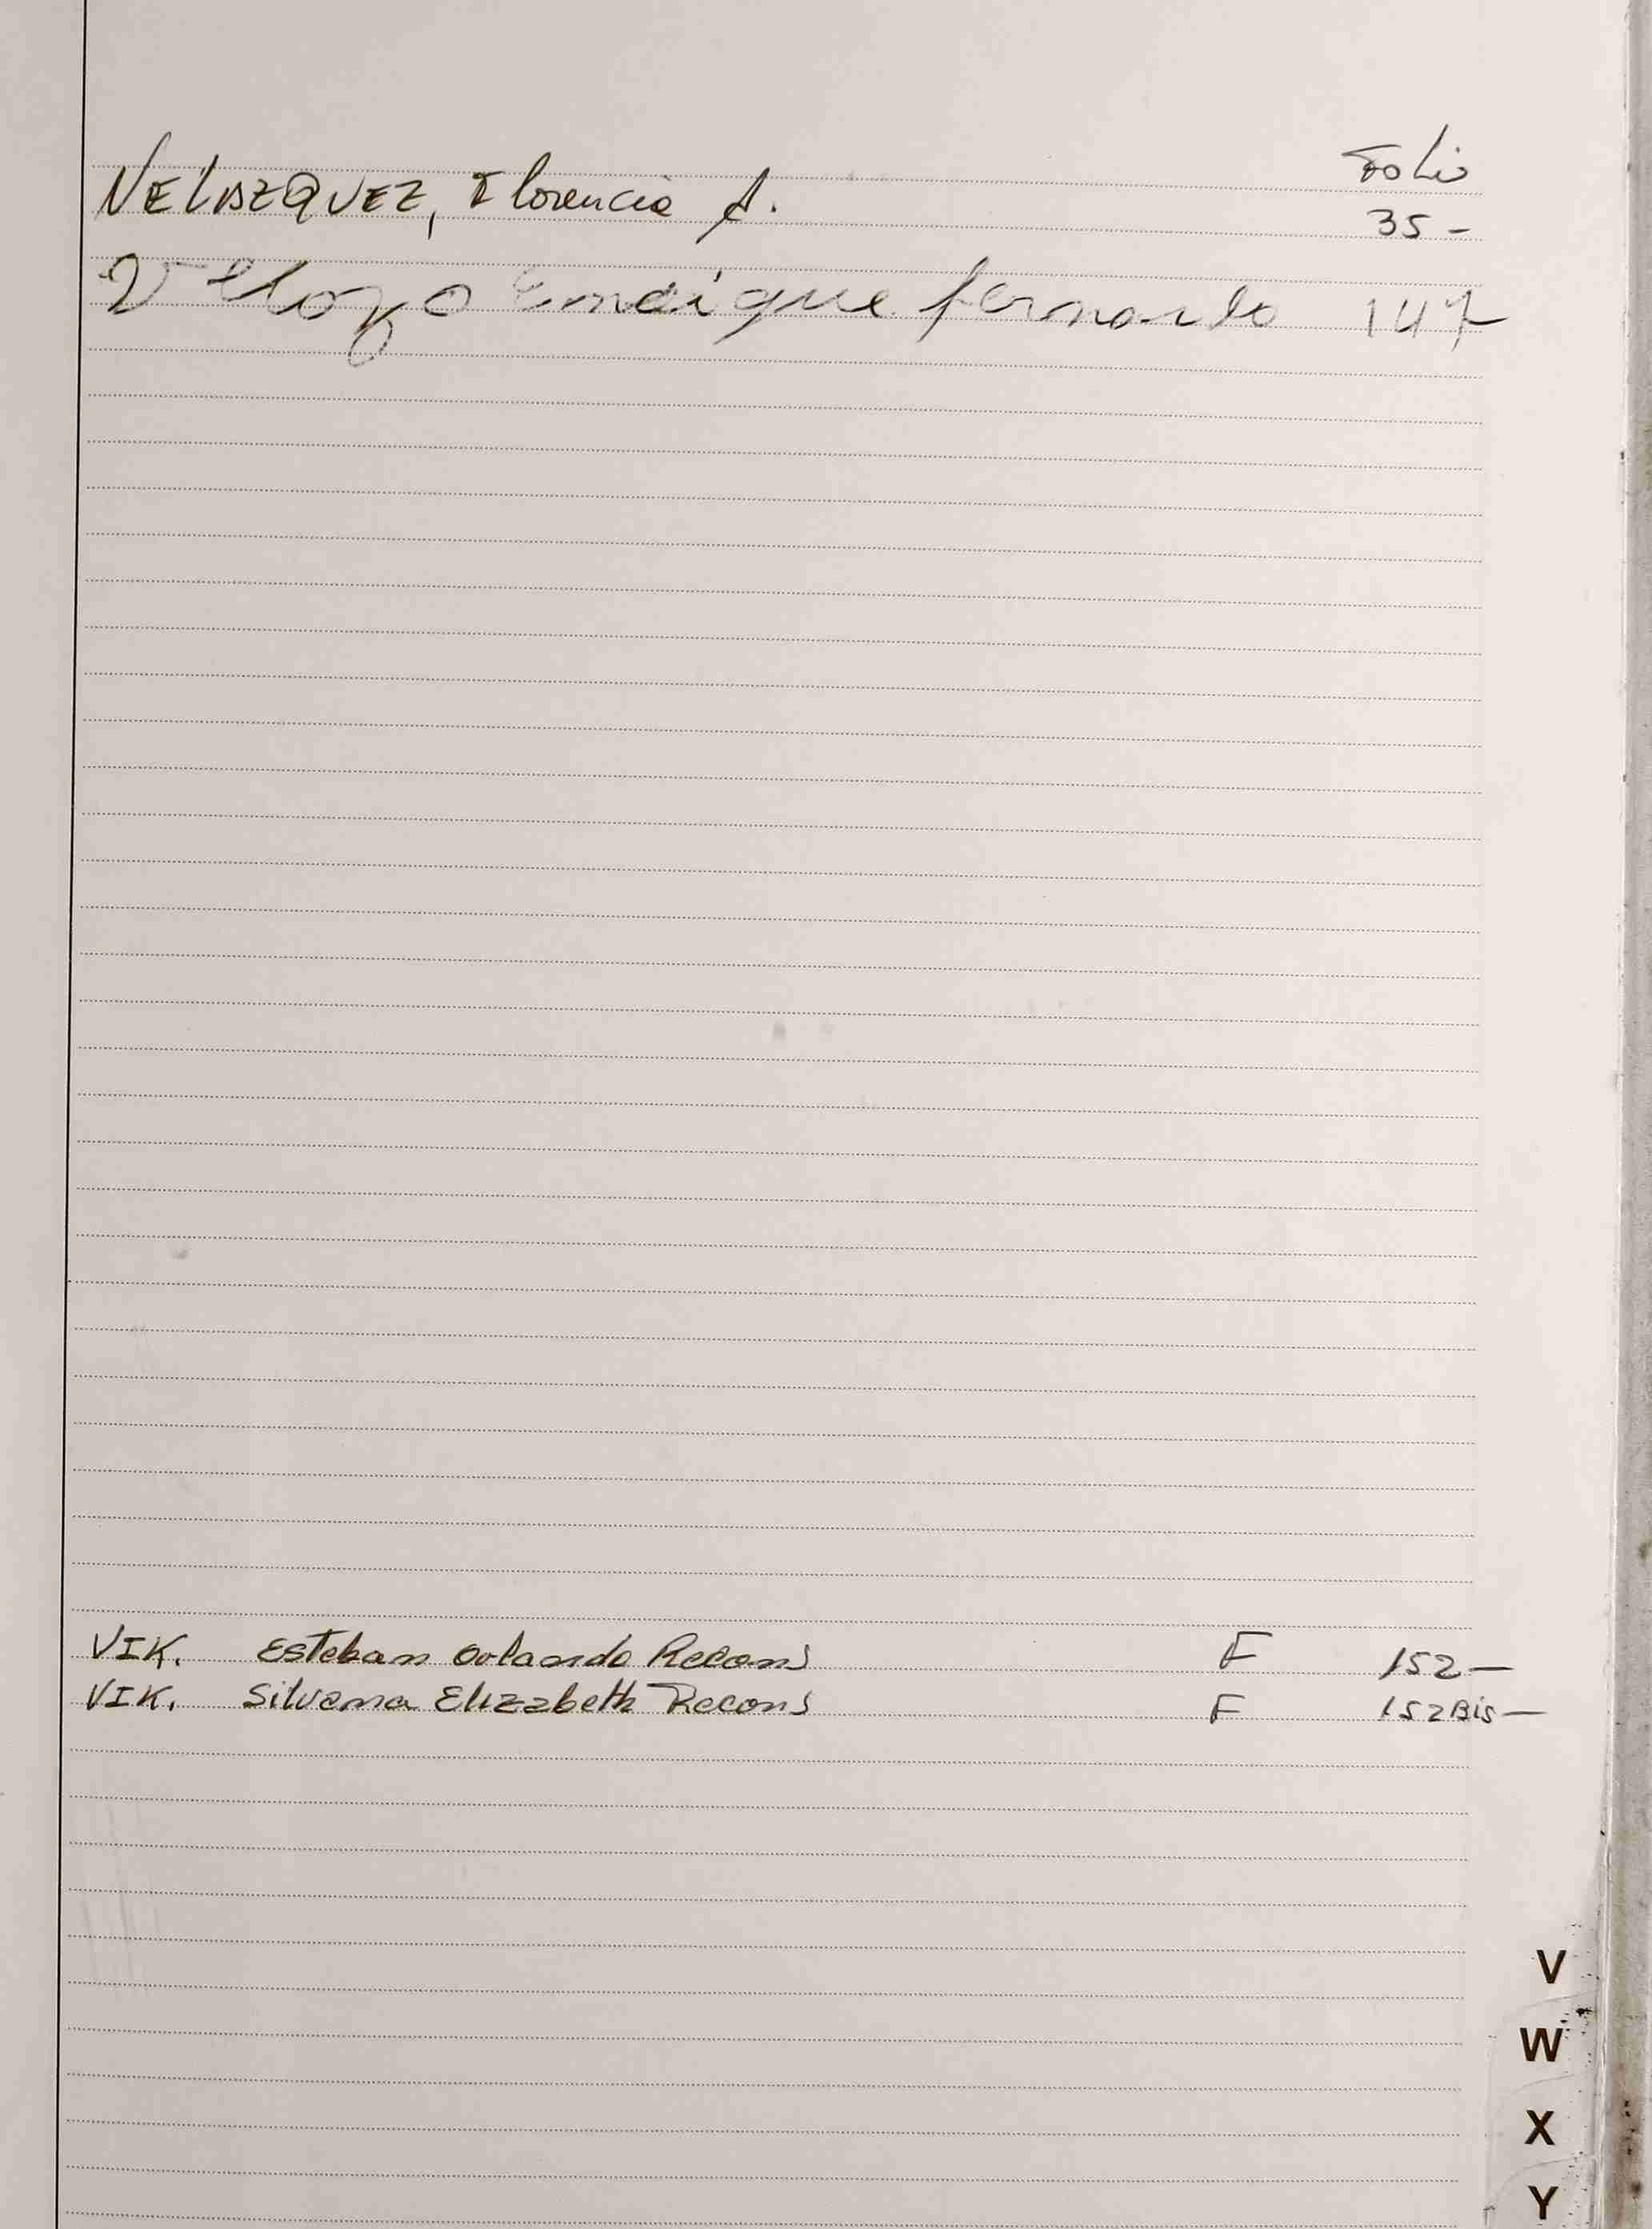 Folio
VELAZQUEZ, Florencia A. 35-
Vellozo Enrique fernando 147
VIK. Esteban Orlando Recons F 152-
VIK. Silvana Elizabeth Recons F 152Bis-
V
W
X
Y